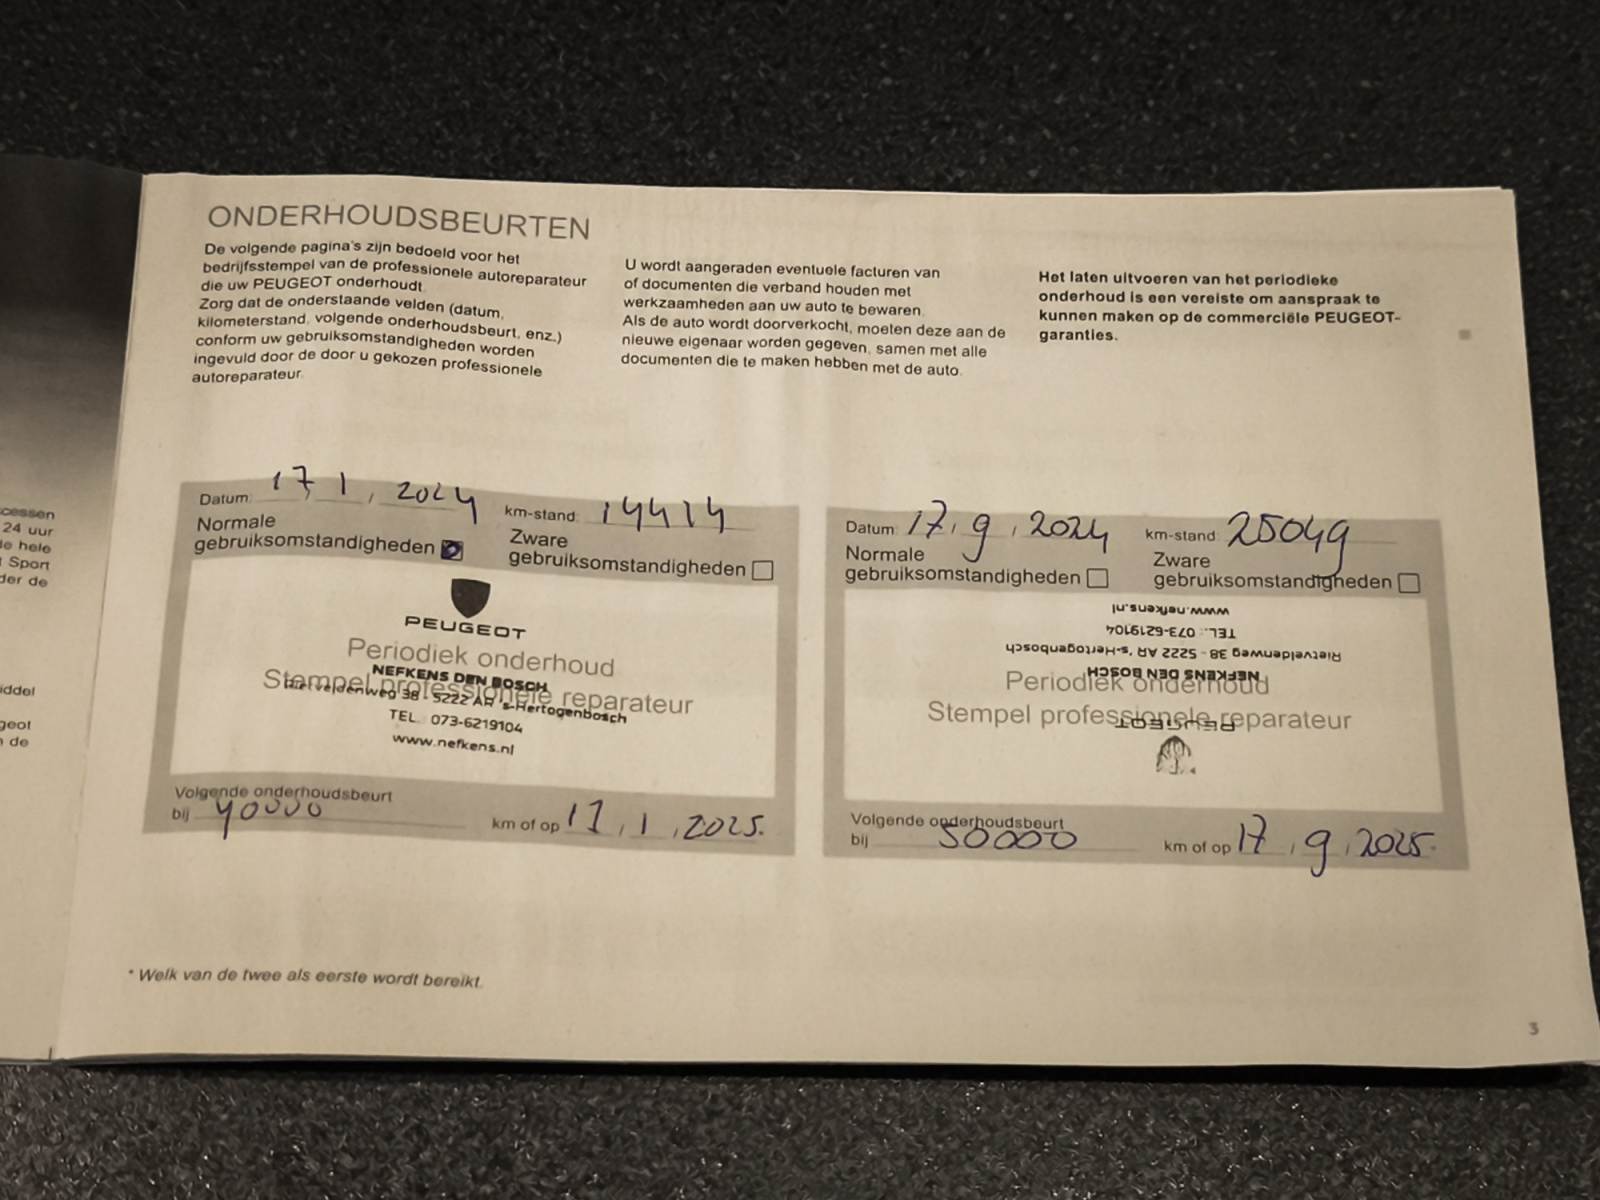 cessen
24 uur
de hele
Sport
der de
iddel
geot
de
ONDERHOUDSBEURTEN
De volgende pagina's zijn bedoeld voor het
bedrijfsstempel van de professionele autoreparateur
die uw PEUGEOT onderhoudt.
Zorg dat de onderstaande velden (datum,
kilometerstand, volgende onderhoudsbeurt, enz.)
conform uw gebruiksomstandigheden worden
ingevuld door de door u gekozen professionele
autoreparateur.
U wordt aangeraden eventuele facturen van
of documenten die verband houden met
werkzaamheden aan uw auto te bewaren.
Als de auto wordt doorverkocht, moeten deze aan de
nieuwe eigenaar worden gegeven, samen met alle
documenten die te maken hebben met de auto.
Het laten uitvoeren van het periodieke
onderhoud is een vereiste om aanspraak te
kunnen maken op de commerciële PEUGEOT-
garanties.
Datum: 17, 1, 2024 km-stand: 14414
Normale
gebruiksomstandigheden
Zware
gebruiksomstandigheden
PEUGEOT
Periodiek onderhoud
NEFKENS DEN BOSCH
Stempel professionele reparateur
Rietveldenweg 38 - 5222 AR 's-Hertogenbosch
TEL. 073-6219104
www.nefkens.nl
Volgende onderhoudsbeurt
bij 40000 km of op 17, 1, 2025.
Datum: 17, 9, 2024 km-stand: 25049
Normale
gebruiksomstandigheden
Zware
gebruiksomstandigheden
www.nefkens.nl
TEL.: 073-6219104
Rietveldenweg 38 - 5222 AR 's-Hertogenbosch
NEFKENS DEN BOSCH
Periodiek onderhoud
Stempel professionele reparateur
PEUGEOT
Volgende onderhoudsbeurt
bij 50000 km of op 17, 9, 2025.
* Welk van de twee als eerste wordt bereikt.
3